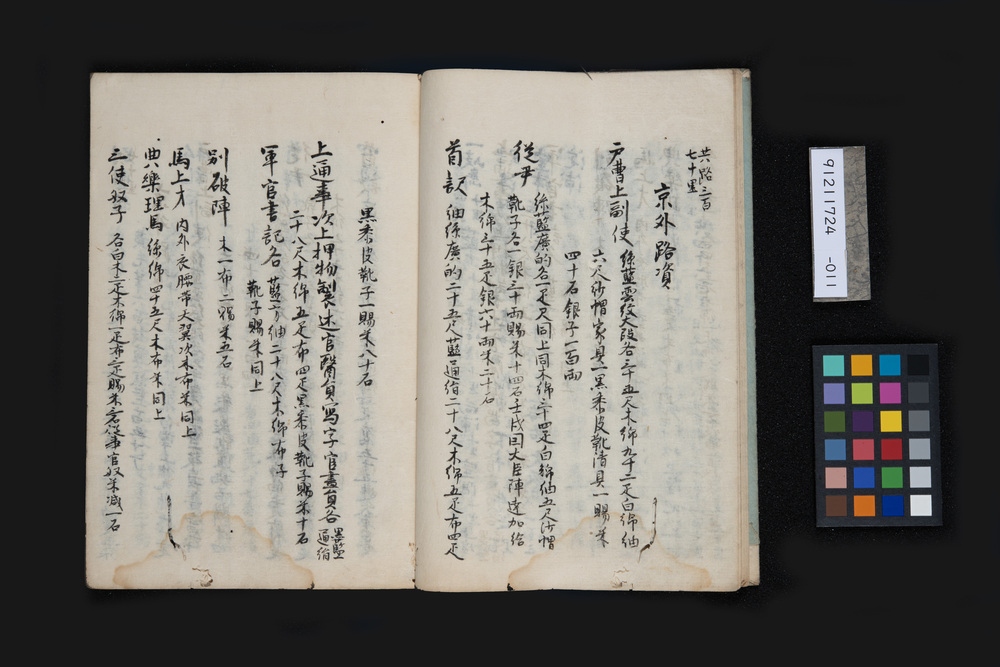 共路三百
七十里
京外路資
正曹上副使 絲藍雲紋大段各三十五尺木綿九十二疋白綿紬
六尺沙帽家具一黑黍皮靴淸具一賜米
四十石銀子一百兩
絲藍廣的各一疋尺同上同木綿三十四疋白綿紬五尺沙帽
從事
靴子各一銀三十兩賜米十四石壬戌因大臣陣達加給
木綿三十五疋銀六十兩米二十石
首訳 紬絲廣的二十五尺藍通絹二十八尺木綿五疋布四疋
黑黍皮靴子一賜米八十石
上通事次上押物製述官醫員寫字官畫員各 墨藍通絹
二十八尺木綿五疋布四疋黑黍皮靴子賜米十石
軍官書記各 藍方紬二十八尺木綿布子
靴子賜米同上
別破陣 木一布二賜米五石
馬上才 內外衣腰帶大翼次木布米同上
典樂理馬 絲綿四十五尺木布米同上
三使奴子 各白木二疋木綿一疋布三疋賜米 從事官奴米減一石
91211724 -011